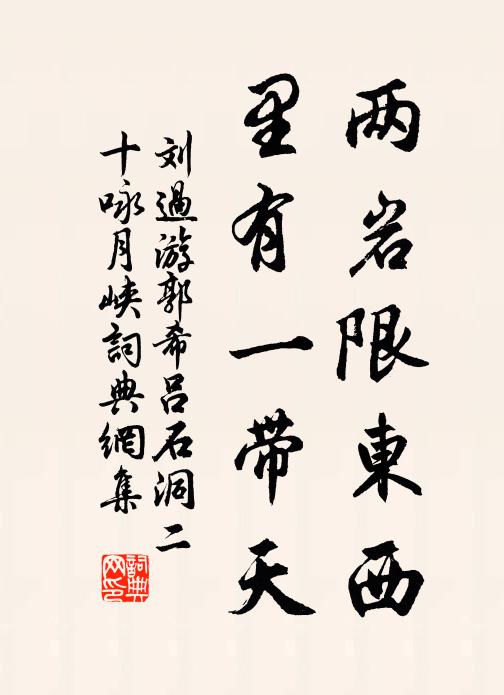 两岩限東西
里有一带天
刘過游郭希吕石洞二
十咏月峡詞典網集
詞典
网印